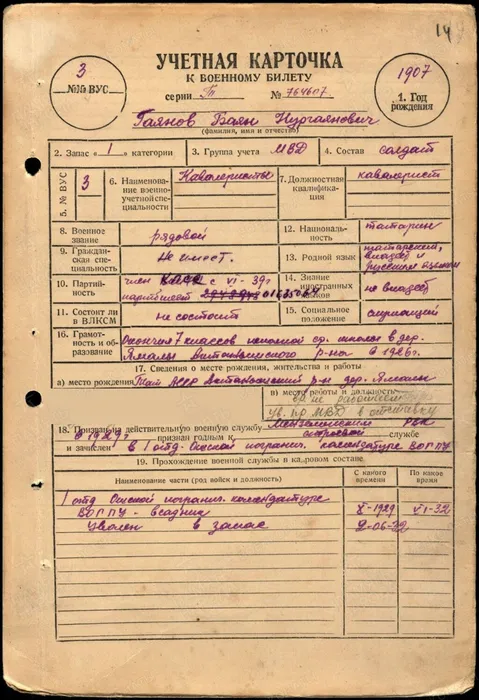 14
УЧЕТНАЯ КАРТОЧКА
К ВОЕННОМУ БИЛЕТУ
3
№№ ВУС
серии Тт № 764607
1907
1. Год рождения
Гаянов Баян Нургаянович
(фамилия, имя и отчество)
2. Запас « 1 » категории
3. Группа учета МВД
4. Состав солдат
5. № ВУС 3
6. Наименование военно-учетной специальности
Кавалеристы
7. Должностная квалификация
кавалерист
8. Военное звание
рядовой
12. Национальность
татарин
9. Гражданская специальность
Не имеет.
13. Родной язык
татарский, владеет и русским языком
10. Партийность
член КПСС с VI-39г
партбилет 01635064
14. Знание иностранных языков
не владеет
11. Состоит ли в ВЛКСМ
не состоит
15. Социальное положение
служащий
16. Грамотность и образование
Окончил 7 классов неполной ср. школы в дер.
Ямалы Актанышского р-на в 1926г.
17. Сведения о месте рождения, жительства и работы
а) место рождения Тат АССР Актанышский р-н дер. Ямалы
в) место работы и должность
не работает
ув. пр МВД в отставку
18. Призван на действительную военную службу Мензелинским РВК
в 1929г признан годным к строевой службе
и зачислен в 1 отд. Окской погранич. комендатуре ВОГПУ
19. Прохождение военной службы в кадровом составе
Наименование части (род войск и должность)
С какого времени
По какое время
1 отд Окской погранич. комендатуре
ВОГПУ - всадник
X-1929
VI-32
Уволен в запас
2-06-32